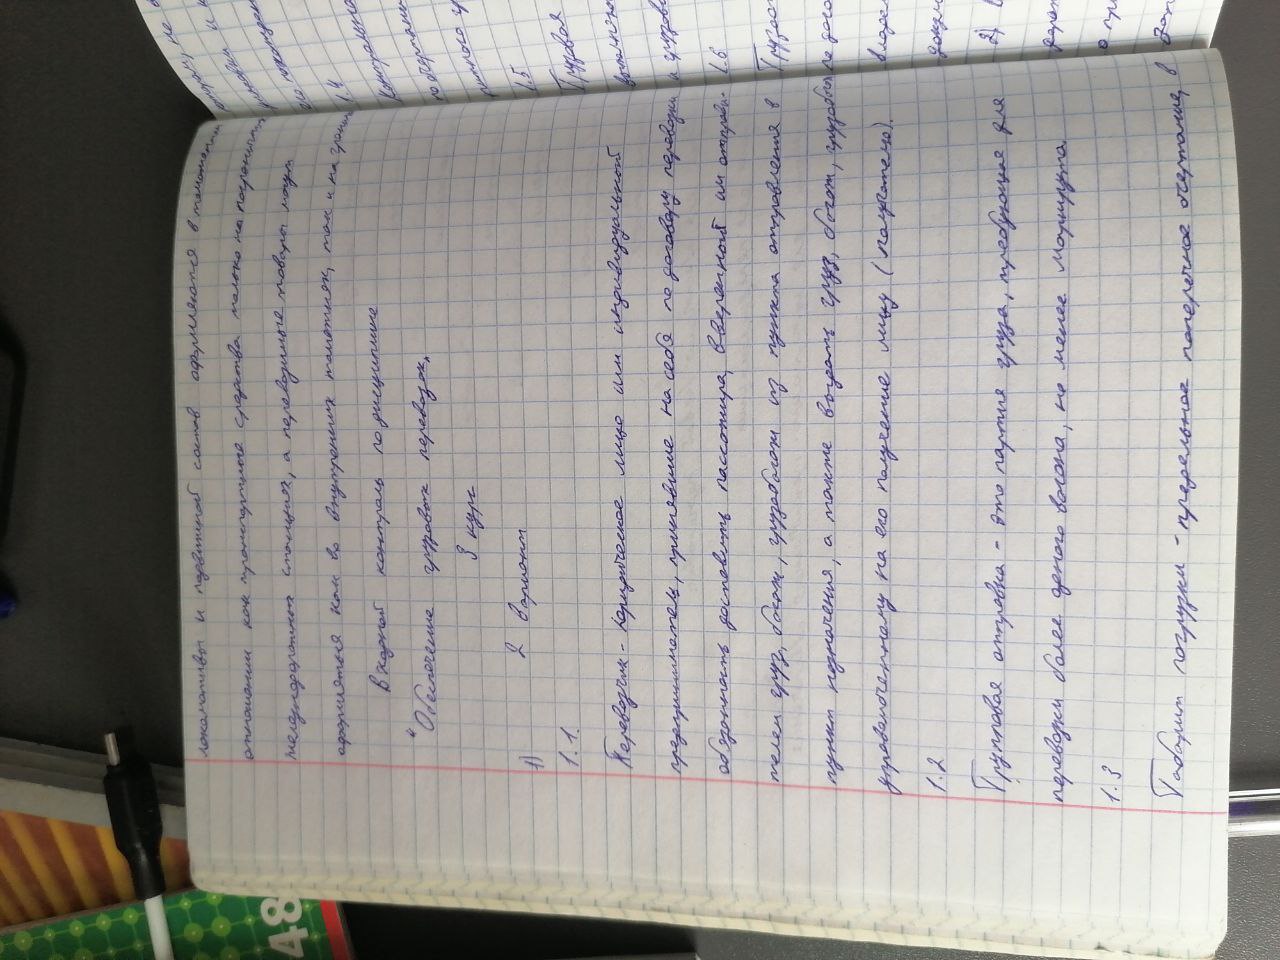 локомотивы и подвижной состав оформляются в таможенном
отношении как транспортные средства только на пограничных
международных станциях, а перевозимые товары могут
оформляться как во внутренних таможнях, так и на границе
Входной контроль по дисциплине
"Обеспечение грузовых перевозок"
3 курс
2 вариант
1)
1.1.
Перевозчик - юридическое лицо или индивидуальный
предприниматель, принявшие на себя по договору перевозки
обязанность доставить пассажира, вверенный им отправи-
телем груз, багаж, грузобагаж из пункта отправления в
пункт назначения, а также выдать груз, багаж, грузобагаж
управомоченному на его получение лицу (получателю).
1.2
Групповая отправка - это партия груза, требующая для
перевозки более одного вагона, но менее маршрута
1.3
Габарит погрузки - предельное поперечное очертание, в
1.4
1.5
Грузовая
1.6
2)
48